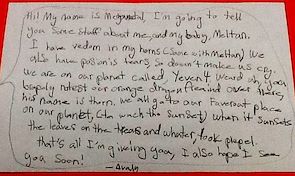 Hi! My name is Megandal, I'm going to tell
you Some stuff about me, and my baby, Meltan.
I have vedom in my horns (Same with Meltan) We
also have poision is tears, so dosen't make us cry.
we are on our planet called Yeven't Weard oh, you
notest our orange dington freand over there,
his name is thurn. we all go to our Faverout place
on our planet, (to wach the sunset) when it sunsets
the leaves on the trears and whater, look
that's all I'm giveing yoa, I also hope I see
yoa soon!